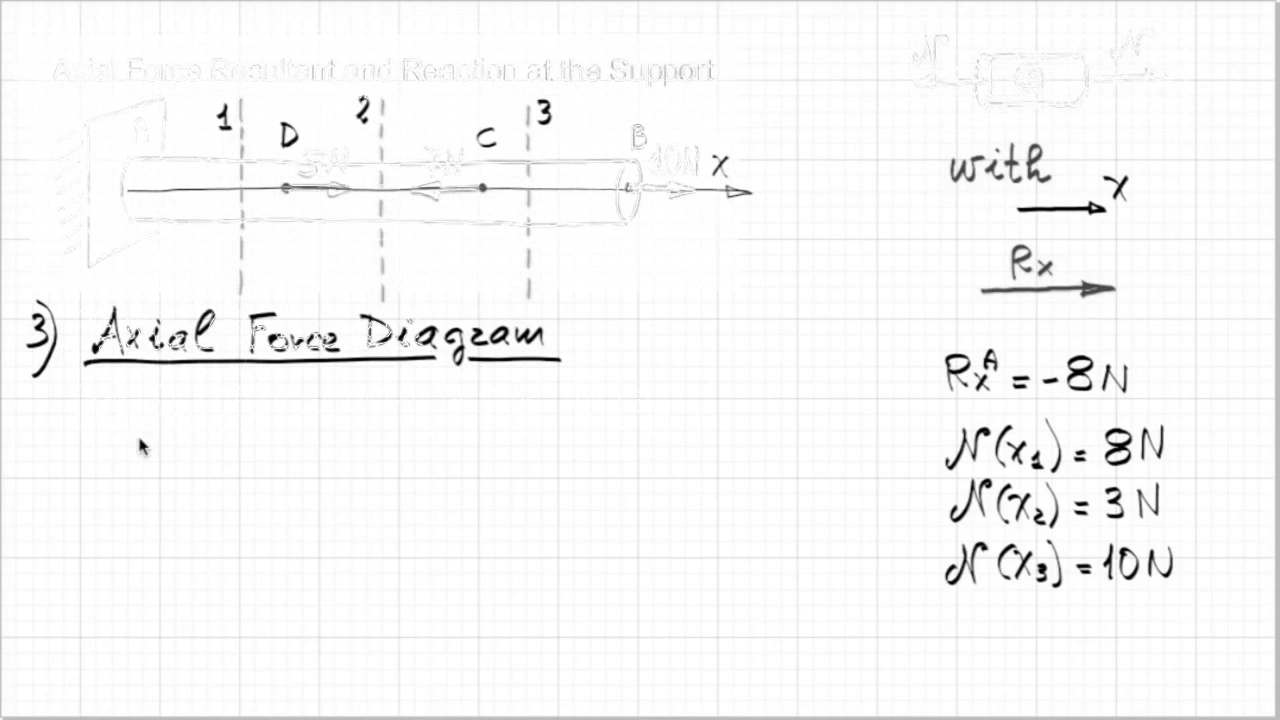 Axial Force Resultant and Reaction at the Support
N N
1 2 3
A D C B
5N 7N 10N x
with
x
Rx
3) Axial Force Diagram
Rx^A = -8N
N(x₁) = 8N
N(x₂) = 3N
N(x₃) = 10N